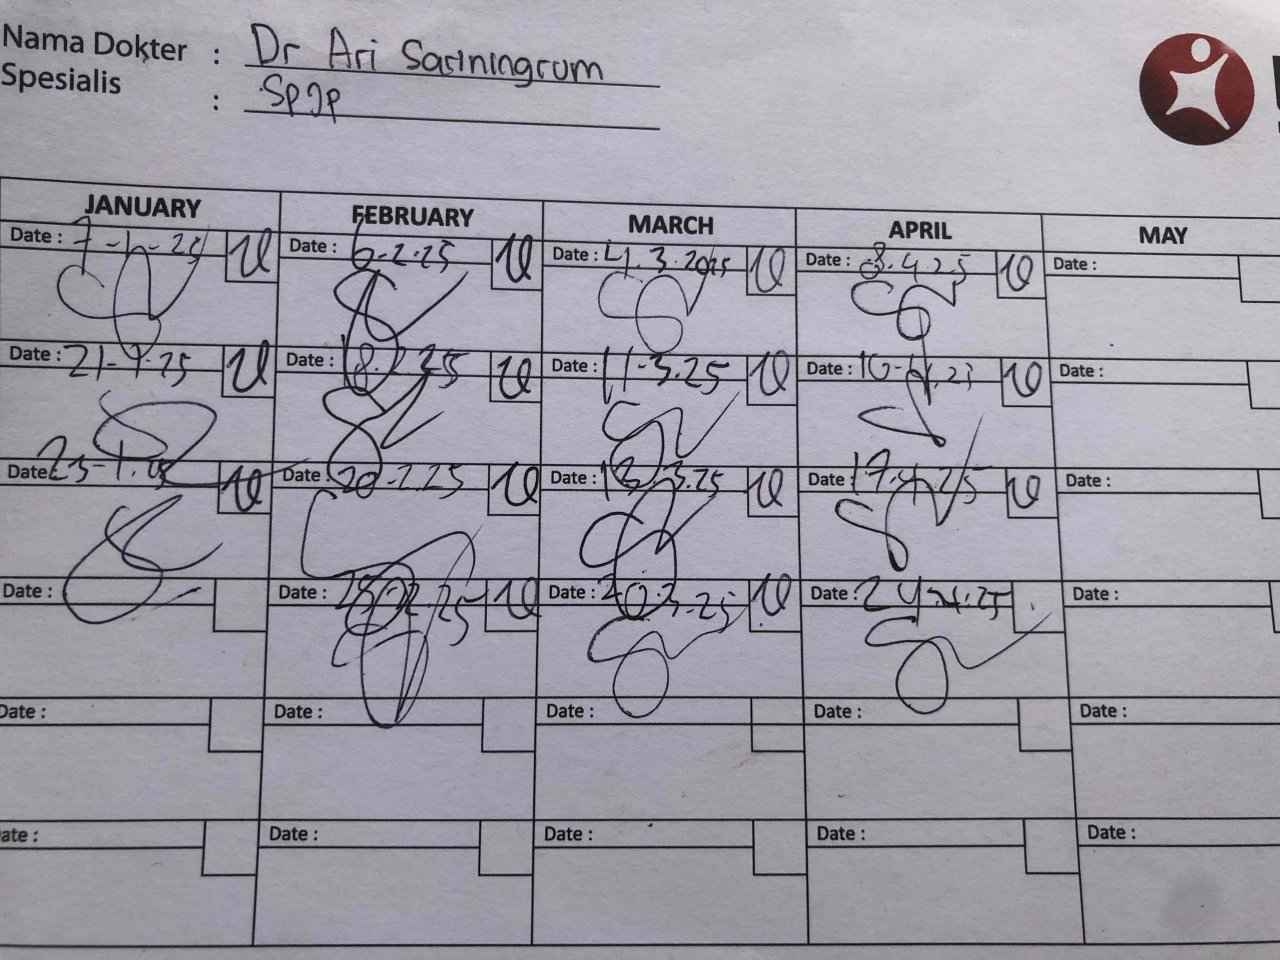 Nama Dokter : Dr Ari Sariningrum
Spesialis : SpJp
JANUARY FEBRUARY MARCH APRIL MAY
Date : 7-1-25 Date : 6-2-25 Date : 4.3.2025 Date : 8.4.25 Date :
Date : 21-1-25 Date : 18.2.25 Date : 11-3.25 Date : 10-4.25 Date :
Date : 23-1.25 Date : 20-2.25 Date : 13.3.25 Date : 17.4.25 Date :
Date : Date : 25-02-25 Date : 20.3-25 Date : 24-4-25 Date :
Date : Date : Date : Date : Date :
Date : Date : Date : Date : Date :